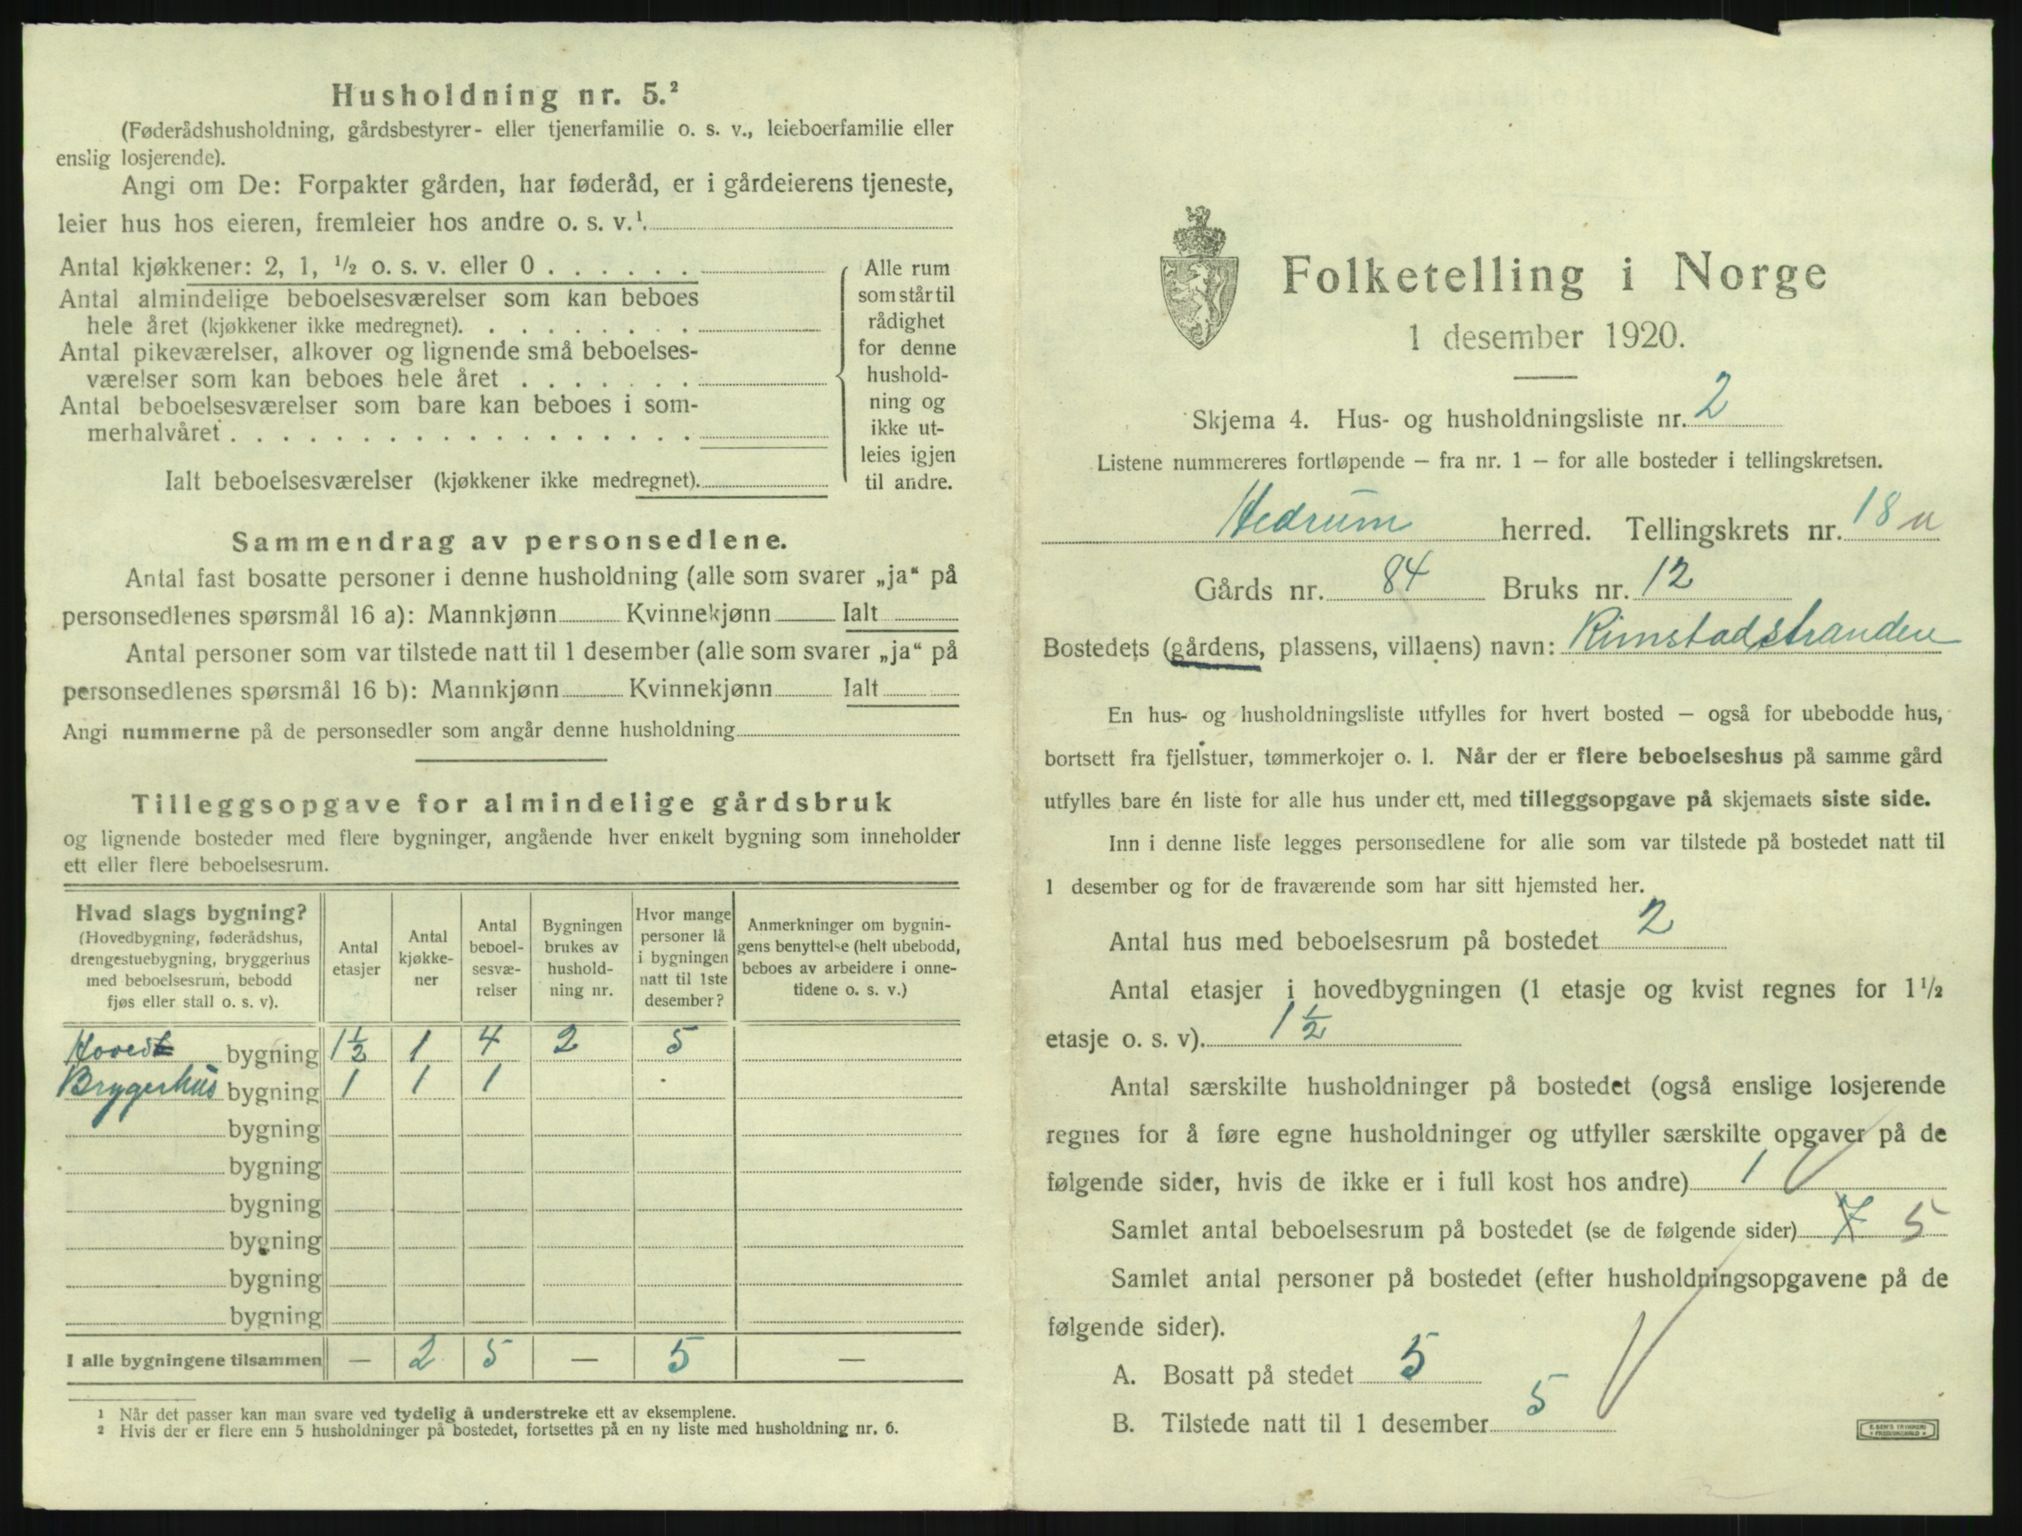 Husholdning nr. 5.²
(Føderådshusholdning, gårdsbestyrer- eller tjenerfamilie o. s. v., leieboerfamilie eller
enslig losjerende).
Angi om De: Forpakter gården, har føderåd, er i gårdeierens tjeneste,
leier hus hos eieren, fremleier hos andre o. s. v.¹.
Antal kjøkkener: 2, 1, ½ o. s. v. eller 0 . . . . . .
Antal almindelige beboelsesværelser som kan beboes
hele året (kjøkkener ikke medregnet). . . . . . . . .
Antal pikeværelser, alkover og lignende små beboelses-
værelser som kan beboes hele året . . . . . . .
Antal beboelsesværelser som bare kan beboes i som-
merhalvåret . . . . . . . . . . . . . . . . . .
Ialt beboelsesværelser (kjøkkener ikke medregnet).
Alle rum
som står til
rådighet
for denne
hushold-
ning og
ikke ut-
leies igjen
til andre.
Sammendrag av personsedlene.
Antal fast bosatte personer i denne husholdning (alle som svarer „ja“ på
personsedlenes spørsmål 16 a): Mannkjønn Kvinnekjønn Ialt
Antal personer som var tilstede natt til 1 desember (alle som svarer „ja“ på
personsedlenes spørsmål 16 b): Mannkjønn Kvinnekjønn Ialt
Angi nummerne på de personsedler som angår denne husholdning
Tilleggsopgave for almindelige gårdsbruk
og lignende bosteder med flere bygninger, angående hver enkelt bygning som inneholder
ett eller flere beboelsesrum.
Hvad slags bygning?
(Hovedbygning, føderådshus,
drengestuebygning, bryggerhus
med beboelsesrum, bebodd
fjøs eller stall o. s. v).
Antal
etasjer
Antal
kjøkke-
ner
Antal
beboel-
sesvæ-
relser
Bygningen
brukes av
hushold-
ning nr.
Hvor mange
personer lå
i bygningen
natt til 1ste
desember?
Anmerkninger om bygnin-
gens benyttelse (helt ubebodd,
beboes av arbeidere i onne-
tidene o. s. v.)
Hoved bygning 1½ 1 4 2 5
Brygerhus bygning 1 1 1 .
bygning
bygning
bygning
bygning
bygning
bygning
I alle bygningene tilsammen — 2 5 — 5 —
¹ Når det passer kan man svare ved tydelig å understreke ett av eksemplene.
² Hvis der er flere enn 5 husholdninger på bostedet, fortsettes på en ny liste med husholdning nr. 6.
Folketelling i Norge
1 desember 1920.
Skjema 4. Hus- og husholdningsliste nr. 2
Listene nummereres fortløpende — fra nr. 1 — for alle bosteder i tellingskretsen.
Hedrum herred. Tellingskrets nr. 18
Gårds nr. 84 Bruks nr. 12
Bostedets (gårdens, plassens, villaens) navn: Rimstadstranden
En hus- og husholdningsliste utfylles for hvert bosted — også for ubebodde hus,
bortsett fra fjellstuer, tømmerkojer o. l. Når der er flere beboelseshus på samme gård
utfylles bare én liste for alle hus under ett, med tilleggsopgave på skjemaets siste side.
Inn i denne liste legges personsedlene for alle som var tilstede på bostedet natt til
1 desember og for de fraværende som har sitt hjemsted her.
Antal hus med beboelsesrum på bostedet 2
Antal etasjer i hovedbygningen (1 etasje og kvist regnes for 1½
etasje o. s. v). 1½
Antal særskilte husholdninger på bostedet (også enslige losjerende
regnes for å føre egne husholdninger og utfyller særskilte opgaver på de
følgende sider, hvis de ikke er i full kost hos andre) 1
Samlet antal beboelsesrum på bostedet (se de følgende sider) 7 5
Samlet antal personer på bostedet (efter husholdningsopgavene på de
følgende sider).
A. Bosatt på stedet 5
B. Tilstede natt til 1 desember 5